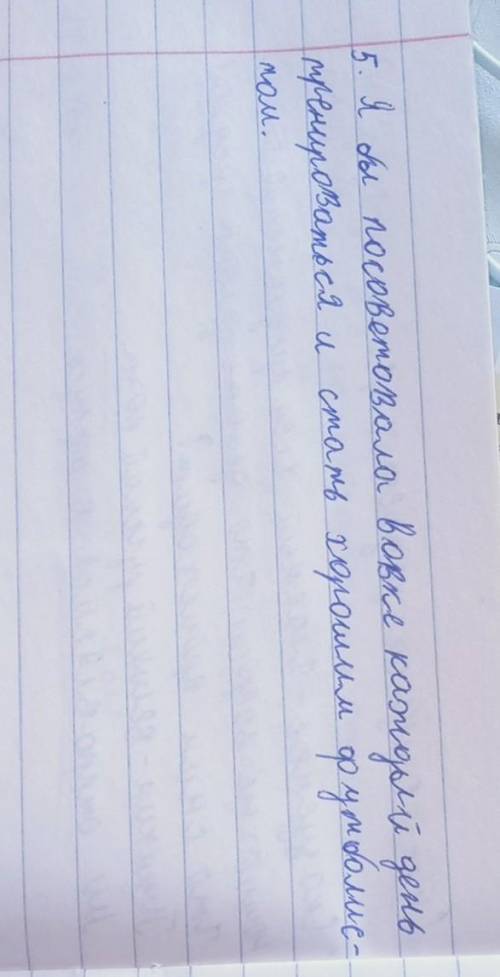 5. Я бы посоветовала Вовке каждый день
тренироваться и стать хорошим футболис-
том.